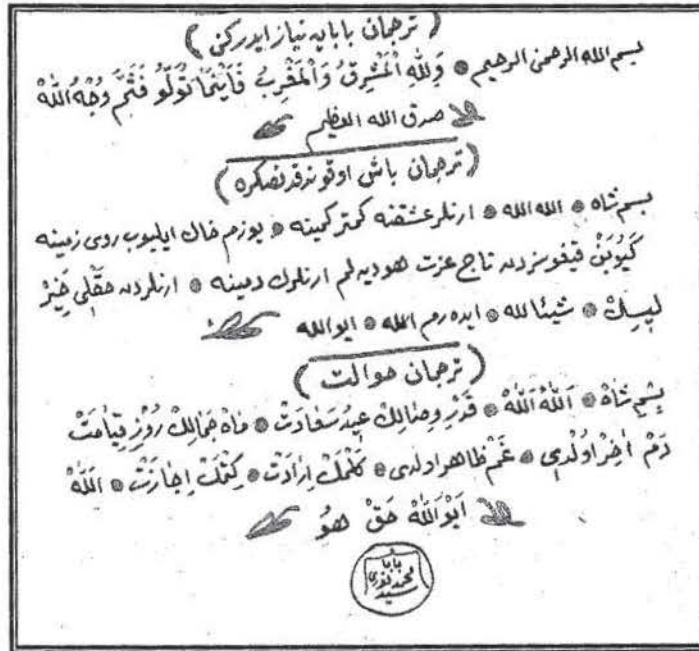 ( ترجمان بابايه نياز ايدركن )
بسم الله الرحمن الرحيم ● وَلِلّٰهِ الْمَشْرِقُ وَالْمَغْرِبُ فَاَيْنَمَا تُوَلُّو فَثَمَّ وَجْهُ اللّٰهْ
صدق الله العظيم
( ترجمان باش اوقوندقدنصكره )
بسم شاه ● الله الله ● ارنلر عشقنه كمتر كمينه ● يوزم خاك ايليوب روى زمينه
كَيُوبَنْ قيغوسزدن تاج عزت هوديه لم ارنلرك دمينه ● ارنلردن حقلى خَيِرْ
شيئا لله ● ايده رم الله ● ايوالله
( ترجمان حوالت )
بِسْمِ شَاهْ ● اَللهْ اَللهْ ● قَدْرِ وِصَالِكْ عِيدِ سَعَادَتْ ● مَاهِ جَمَالِكْ رُوزِ قِيَامَتْ
دَمْ اٰخِرْ اُولْدِى ● غَمْ ظاهر اولدى ● كَلْمَكْ اِرَادَتْ ● كِتْمَكْ اِجَازَتْ ● اَللهْ
اَيْوَاللهْ حَقْ هُو
بابا
محمد نورى
سيد